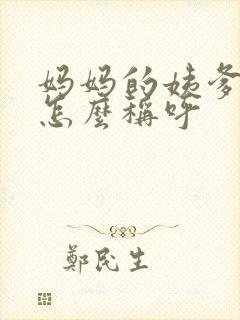 妈妈的姨爹
怎麼稱呼
鄭民生